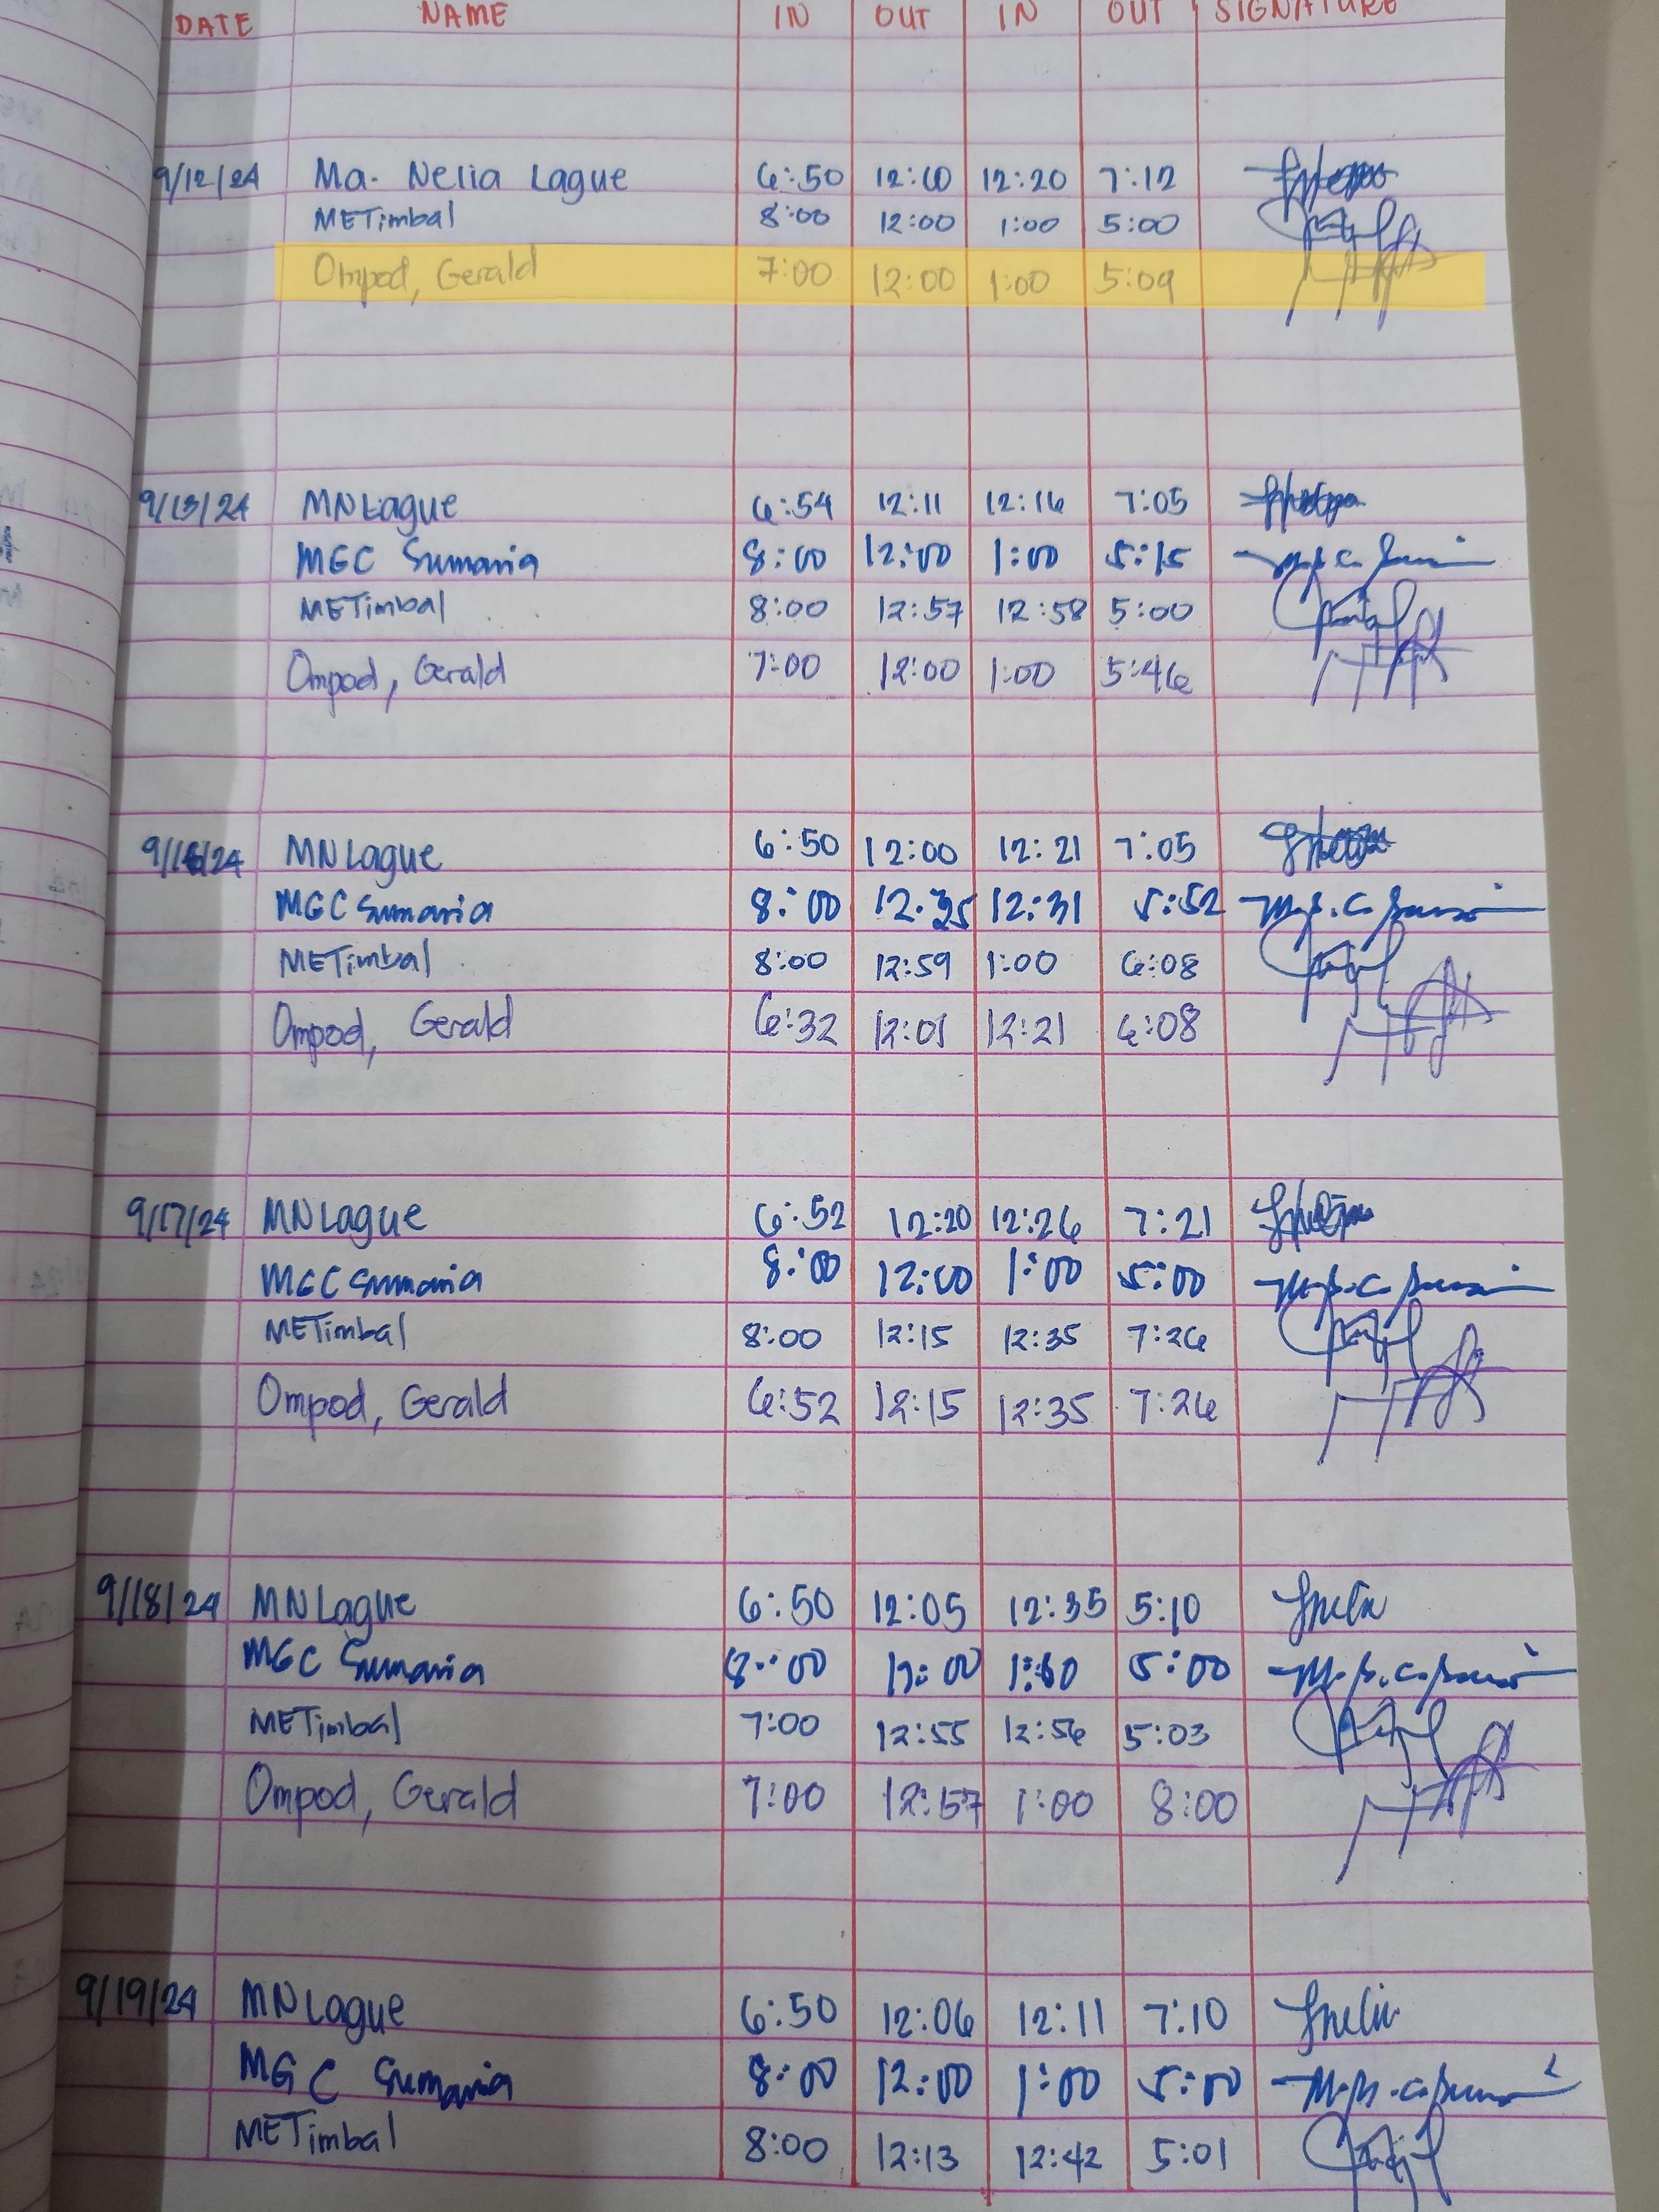 DATE NAME IN OUT IN OUT SIGNATURE
9/12/24 Ma. Nelia Lague 6:50 12:10 12:20 7:12
METimbal 8:00 12:00 1:00 5:00
Ompod, Gerald 7:00 12:00 1:00 5:09
9/13/24 MNLague 6:54 12:11 12:16 7:05
MGC Sumania 8:00 12:00 1:00 5:15
METimbal 8:00 12:57 12:58 5:00
Ompod, Gerald 7:00 12:00 1:00 5:46
9/16/24 MNLague 6:50 12:00 12:21 7:05
MGC Sumania 8:00 12:31 5:52
METimbal 8:00 12:59 1:00 6:08
Ompod, Gerald 6:32 12:01 12:21 6:08
9/17/24 MNLague 6:52 12:20 12:26 7:21
MGC Sumania 8:00 12:00 1:00 5:00
METimbal 8:00 12:15 12:35 7:26
Ompod, Gerald 6:52 12:15 12:35 7:26
9/18/24 MNLague 6:50 12:05 12:35 5:10
MGC Sumania 8:00 12:00 1:00 5:00
METimbal 7:00 12:55 12:56 5:03
Ompod, Gerald 7:00 12:57 1:00 8:00
9/19/24 MNLague 6:50 12:06 12:11 7:10
MGC Sumania 8:00 12:00 1:00 5:00
METimbal 8:00 12:13 12:42 5:01